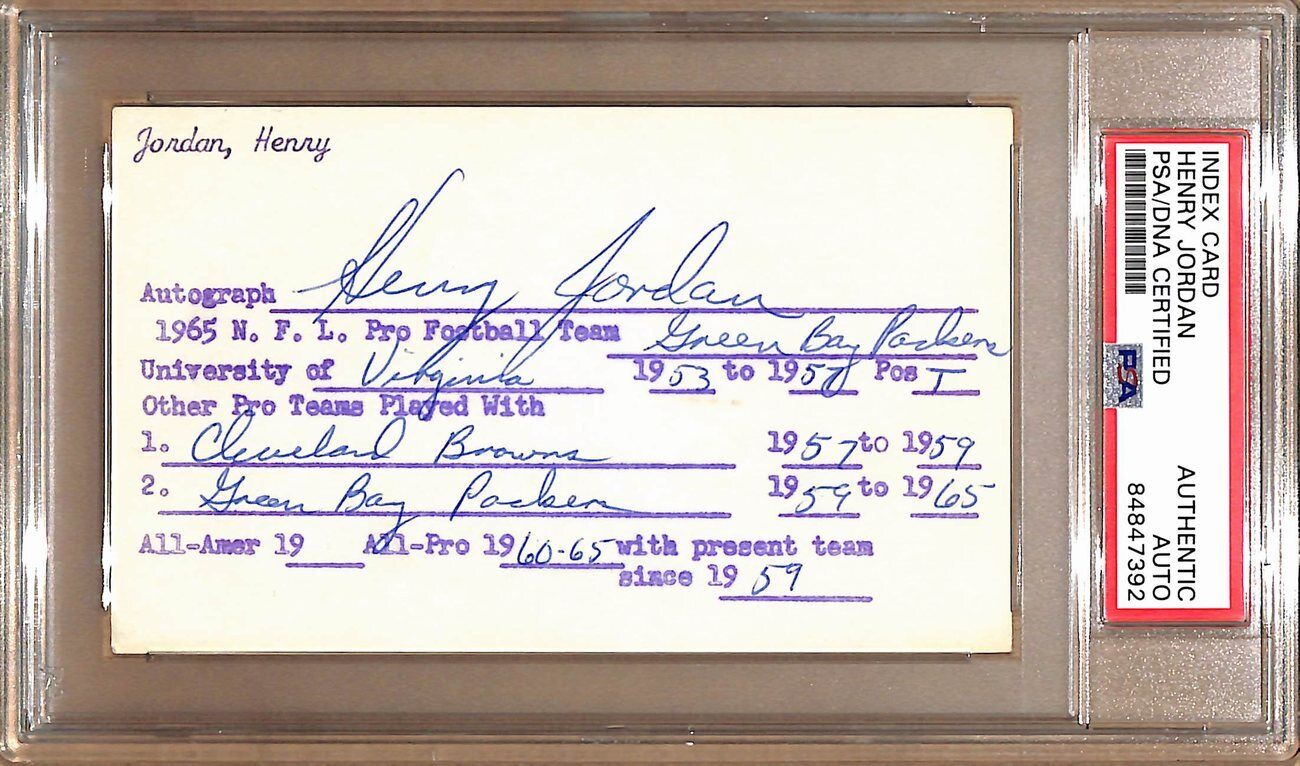 Jordan, Henry
Autograph Henry Jordan
1965 N. F. L. Pro Football Team Green Bay Packers
University of Virginia 1953 to 1957 Pos T
Other Pro Teams Played With
1. Cleveland Browns 1957 to 1959
2. Green Bay Packers 1959 to 1965
All-Amer 19 All-Pro 1960-65 with present team
since 1959
INDEX CARD
HENRY JORDAN
PSA/DNA CERTIFIED
PSA
AUTHENTIC
AUTO
84847392